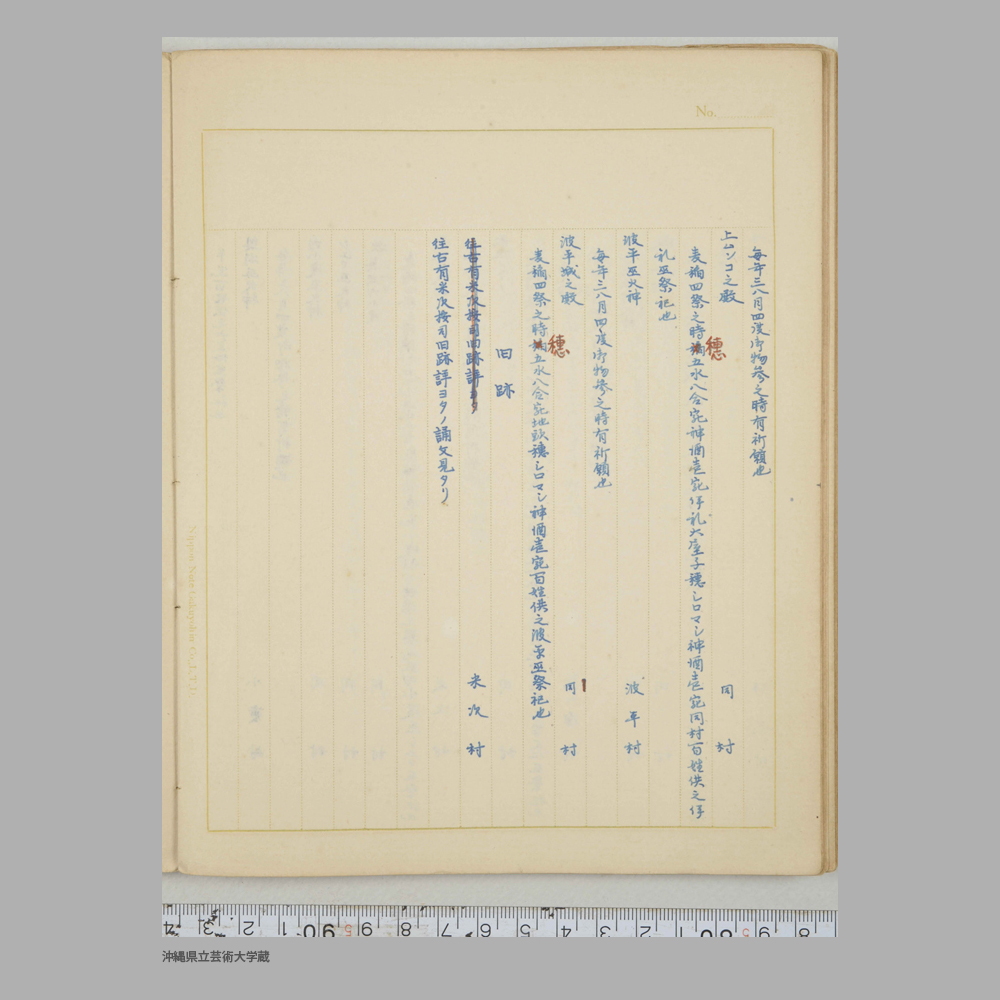 No.
毎年三八月四度御物参之時有祈願也
上ムソコ之殿 同村
麦穂四祭之時穂五水八合宛神酒壱宛伊礼大屋子穂シロマシ神酒壱宛同村百姓供之伊
礼巫祭祀也
波平巫火神 波平村
毎年三八月四度御物参之時有祈願也
波平城之殿 同村
麦穂四祭之時穂五水八合宛地頭穂シロマシ神酒壱宛百姓供之波平巫祭祀也
旧跡
往古有米次按司旧跡詳ヨタ 米次村
往古有米次按司旧跡詳ヨタノ誦文見タリ
沖縄県立芸術大学蔵